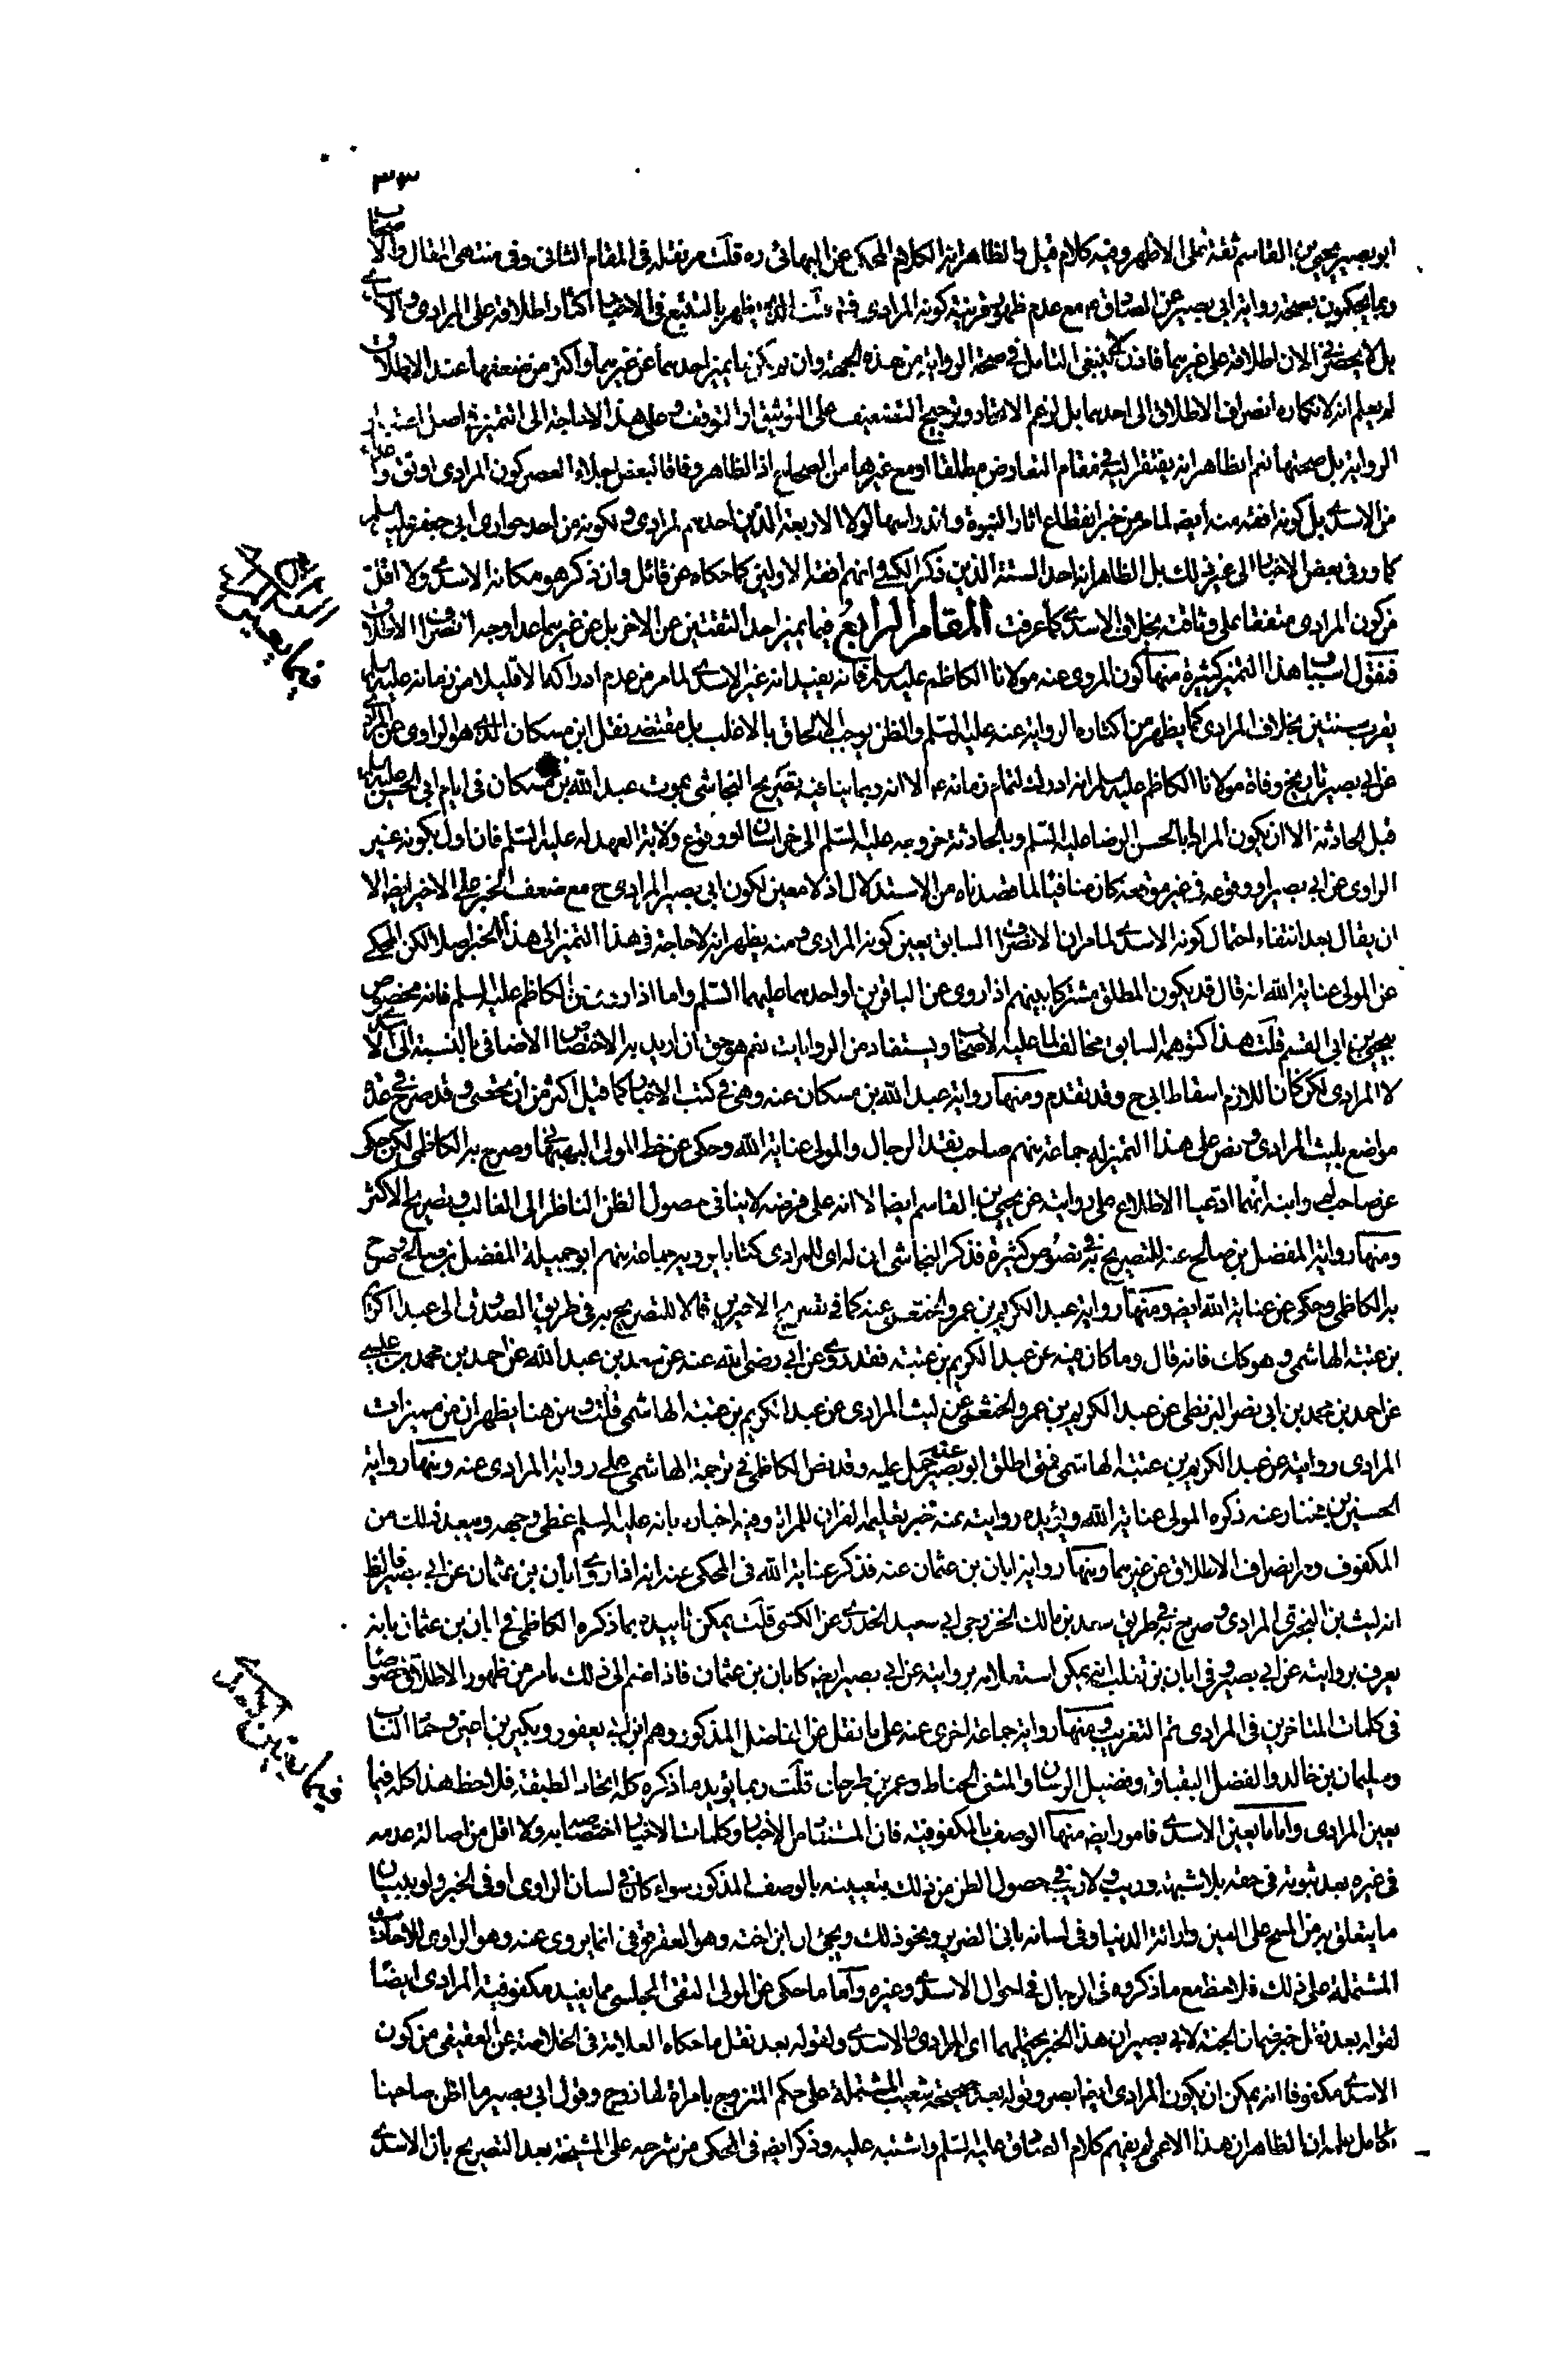 ٣٤٣
ابو بصير يحيى بن القاسم ثقة على الاظهر وفيه كلام قيل والظاهر انه الكلام المحكى عن البهائى ره قلت مر نقله فى المقام الثانى وفى منتهى المقال والاصحاب
ربما يحكمون بصحة رواية ابى بصير عن الصادق ع مع عدم ظهور قرينة كونه المرادى فتثبت الذى يظهر بالتتبع فى الاخبار اكثار اطلاقه على المرادى والاسدى
بل لا يحضرنى الان اطلاقه على غيرهما فاذن لا ينبغى التامل فى صحة الرواية من هذه الجهة وان لم يكن ما يميز احدهما عن غيرهما واكثر من ضعفها عند الاطلاق
لم يعلم انه لانكاره انصراف الاطلاق الى احدهما بل لزعم الاتحاد وترجيح التضعيف على التوثيق او التوقف وعلى هذا لا حاجة الى التميز فى اصل اعتبار
الرواية بل صحتها نعم الظاهر انه يفتقر اليه فى مقام التعارض مطلقا او مع غيرها من الصحاح اذ الظاهر وفاقا لبعض اجلاء العصر كون المرادى اوثق و
من الاسدى بل كونه افقه منه ايضا لما مر من خبر انقطاع اثار النبوة واندراسها لولا الاربعة الذين احدهم المرادى ولكونه من احد حوارى ابى جعفر عليه السلم
كما ورد فى بعض الاخبار الى غير ذلك بل الظاهر انه احد الستة الذين ذكر الكشى انهم افقه الاولين كما حكاه عن قائل وان ذكر هو مكانه الاسدى ولا اقل
من كون المرادى متفقا على وثاقته بخلاف الاسدى كما عرفت المقام الرابع فيما يميز احد الثقتين عن الاخر بل عن غيرهما عدا وجه انصراف الاطلاق
فنقول اسباب هذا التميز كثيرة منها كون المروى عنه مولانا الكاظم عليه السلم فانه يفيد انه غير الاسدى لما مر من عدم ادراكه الا قليلا من زمانه عليه السلم
يقرب سنتين بخلاف المرادى كما يظهر من اكثاره الرواية عنه عليه السلم والظن يوجب الالحاق بالاغلب بل مقتضى نقل ابن مسكان الذى هو الراوى عن المرادى
عن ابى بصير تاريخ وفاة مولانا الكاظم عليه السلم انه ادرك تمام زمانه ع الا انه ربما ينافيه تصريح النجاشى بموت عبد الله بن مسكان فى ايام ابى الحسن عليه السلم
قبل الحادثة الا ان يكون المراد بابى الحسن الرضا عليه السلم وبالحادثة خروجه عليه السلم الى خراسان او وقوع ولاية العهد له عليه السلم فان اول بكونه غير
الراوى عن ابى بصير او وقوعه فى غير موقعه كان منافيا لما قصدناه من الاستدلال اذ لا معين لكون ابى بصير المرادى ح مع ضعف الخبر على الاخير ايضا الا
ان يقال بعد انتفاء احتمال كونه الاسدى لما مر ان الانصراف السابق يعين كونه المرادى ومنه يظهر انه لا حاجة فى هذا التميز الى هذا الخبر اصلا لكن المحكى
عن المولى عناية الله انه قال قد يكون المطلق مشتركا بينهم اذا روى عن الباقرين او احدهما عليهما السلم واما اذا روى عن الكاظم عليه السلم فانه مخصوص
بيحيى بن ابى القسم قلت هذا كتوهمه السابق مخالف لما عليه الاصحاب ويستفاد من الروايات نعم هو حق ان اريد به الاختصاص الاضافى بالنسبة الى الاسدى
لا المرادى لكن كان اللازم اسقاط ابى ح وقد تقدم ومنها رواية عبد الله بن مسكان عنه وهى فى كتب الاخبار كما قيل اكثر من ان تحصى وقد صرح فى عدة
مواضع بليث المرادى ونص على هذا التميز له جماعة منهم صاحب نقد الرجال والمولى عناية الله وحكى عن خط المولى البهبهانى وصرح به الكاظمى لكن حكى
عن صاحب لم وابنه انهما ادعيا الاطلاع على روايته عن يحيى بن القاسم ايضا الا انه على فرضه لا ينافى حصول الظن الناظر الى الغالب وتصريح الاكثر
ومنها رواية المفضل بن صالح عنه للتصريح به فى نصوص كثيرة فذكر النجاشى ان له اى للمرادى كتابا يرويه جماعة منهم ابو جميلة المفضل بن صالح وصرح
به الكاظمى وحكى عن عناية الله ايضا ومنها رواية عبد الكريم بن عمرو الخثعمى عنه كما فى تصريح الاخيرين قالا للتصريح به فى طريق الصدوق الى عبد الكريم
بن عتبة الهاشمى وهو كك فانه قال وما كان فيه عن عبد الكريم بن عتبة فقد رويته عن ابى رضى الله عنه عن سعد بن عبد الله عن احمد بن محمد بن عيسى
عن احمد بن محمد بن ابى نصر البزنطى عن عبد الكريم بن عمرو الخثعمى عن ليث المرادى عن عبد الكريم بن عتبة الهاشمى قلت ومن هنا يظهر ان من مميزات
المرادى روايته عن عبد الكريم بن عتبة الهاشمى فمتى اطلق ابو بصير عنه حمل عليه وقد نص الكاظمى فى ترجمة الهاشمى على رواية المرادى عنه ومنها رواية
الحسين بن مختار عنه ذكره المولى عناية الله ويؤيده روايته عنه خبر تعليمه القران للمراة وفيه اخباره بانه عليه السلم غطى وجهه ويبعد ذلك من
المكفوف ومر انصراف الاطلاق عن غيرهما ومنها رواية ابان بن عثمان عنه فذكر عناية الله فى المحكى عنه انه اذا روى ابان بن عثمان عن ابى بصير فالظ
انه ليث بن البخترى المرادى وصرح به فى طريق سعد بن مالك الخزرجى ابى سعيد الخدرى عن الكشى قلت يمكن تاييده بما ذكره الكاظمى فى ابان بن عثمان بانه
يعرف بروايته عن ابى بصير وفى ابان بن تغلب انه يمكن استعلامه بروايته عن ابى بصير ايضا كابان بن عثمان فاذا ضم الى ذلك ما مر من ظهور الاطلاق خصوصا
فى كلمات المتاخرين فى المرادى تم التقريب ومنها رواية جماعة اخرى عنه على ما نقل عن الفاضل المذكور وهم ابن ابى يعفور وبكير بن اعين وحماد الناب
وسليمان بن خالد والفضل البقباق وفضيل الرسان والمثنى الحناط وعمر بن طرحان قلت ربما يؤيد ما ذكره كله اتحاد الطبقة فلاحظ هذا كله فيما
يعين المرادى واما ما يعين الاسدى فامور ايضا منها الوصف بالمكفوفية فان المستفاد من الاخبار وكلمات الاخيار اختصاصه به ولا اقل من اصالة عدمه
فى غيره بعد ثبوته فى حقه بلا شبهة وريب ولا ريب فى حصول الظن من ذلك بتعيينه بالوصف المذكور سواء كان فى لسان الراوى او فى الخبر ولو ببيان
ما يتعلق به من المسح على العين وارائة الدنيا وفى لسانه بانى الضرير ونحو ذلك ويجئ ان ابن اخته وهو العقرقوفى انما يروى عنه وهو الراوى للاحاديث
المشتملة على ذلك فلاحظ مع ما ذكروه فى الرجال فى احوال الاسدى وغيره واما ما حكى عن المولى التقى المجلسى مما يفيد مكفوفية المرادى ايضا
لقوله بعد نقل خبر ضمان الجنة لابى بصير ان هذا الخبر يحتملهما اى المرادى والاسدى ولقوله بعد نقل ما حكاه العلامة فى الخلاصة عن العقيقى من كون
الاسدى مكفوفا انه يمكن ان يكون المرادى ايضا بصير وقوله بعد صحيحة شعيب المشتملة على حكم المتزوج بامراة لها زوج وقول ابى بصير ما اظن صاحبنا
تكامل علمه ان الظاهر ان هذا الاعمى لم يفهم كلام الصادق عليه السلم واشتبه عليه وذكر ايضا فى المحكى من شرحه على المشيخة بعد التصريح بان الاسدى